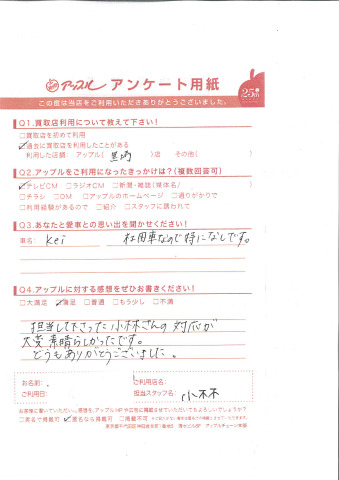 アップル アンケート用紙
25th
この度は当店をご利用いただきありがとうございました。
Q1.買取店利用について教えて下さい!
□買取店を初めて利用
☑過去に買取店を利用したことがある
利用した店舗: アップル( 黒崎 )店 その他( )
Q2.アップルをご利用になったきっかけは?(複数回答可)
☑テレビCM □ラジオCM □新聞・雑誌(媒体名/ )
□チラシ □DM □アップルのホームページ □通りがかりで
□利用経験があるので □紹介 □スタッフに誘われて
Q3.あなたと愛車との思い出を聞かせください!
車名: Kei 社用車なので特になしです。
Q4.アップルに対する感想をぜひお書きください!
□大満足 ☑満足 □普通 □もう少し □不満
担当して下さった小林さんの対応が
大変素晴らしかったです。
どうもありがとうございました。
お名前: ご利用店名:
ご利用日: 担当スタッフ名: 小林
お客様に書いていただいた感想を、アップルHPや広告に掲載させていただいてもよろしいでしょうか?
□実名で掲載可 ☑匿名なら掲載可 □掲載不可